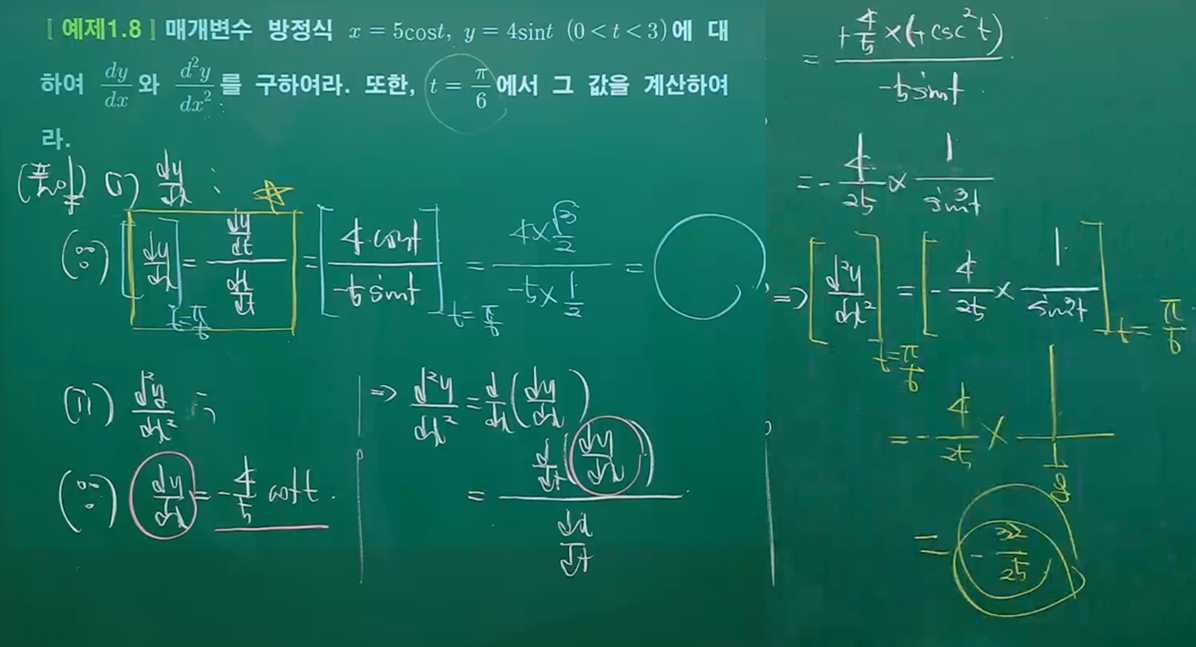 [ 예제1.8 ] 매개변수 방정식 x = 5cost, y = 4sint (0 < t < 3)에 대
하여 dy/dx 와 d²y/dx² 를 구하여라. 또한, t = π/6 에서 그 값을 계산하여
라.
(풀이) (i) dy/dx : ☆
(∵) [dy/dx]_{t=π/6} = (dy/dt)/(dx/dt) = [4cost/-5sint]_{t=π/6} = (4×√3/2)/(-5×1/2) =
(ii) d²y/dx² :
(∵) dy/dx = -4/5 cott.
=> d²y/dx² = d/dx(dy/dx)
= (d/dt(dy/dx))/(dx/dt)
= (+4/5×(+csc²t))/(-5sint)
= -4/25 × 1/sin³t
=> [d²y/dx²]_{t=π/6} = [-4/25 × 1/sin³t]_{t=π/6}
= -4/25 × 1/(1/8)
= -32/25